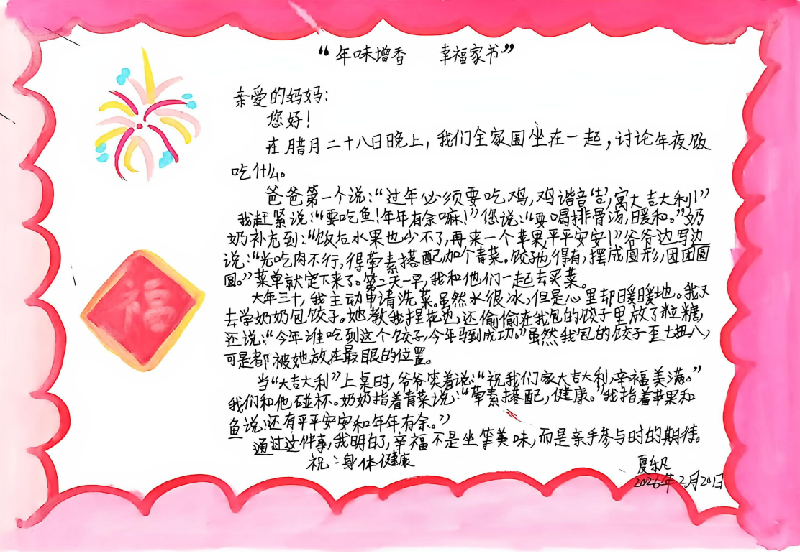 “年味增香 幸福家书”
亲爱的妈妈:
您好!
在腊月二十八日晚上,我们全家围坐在一起,讨论年夜饭
吃什么。
爸爸第一个说:“过年必须要吃鸡,鸡谐音‘吉’,寓大吉大利!”
我赶紧说:“要吃鱼!年年有余嘛!”您说:“要喝排骨汤,暖和。”奶
奶补充到:“饭后水果也少不了,再来一个苹果,平平安安!”爷爷边写边
说:“光吃肉不行,得荤素搭配加个青菜。饺子也得有,摆成圆形,团团圆
圆。”菜单就定下来了。第二天一早,我和他们一起去买菜。
大年三十,我主动申请洗菜。虽然水很冰,但是心里却暖暖地。我又
去学奶奶包饺子。她教我捏花边,还偷偷在我包的饺子里放了粒糖,
还说:“今年谁吃到这个饺子,今年马到成功。”虽然我包的饺子歪七扭八,
可是都被她放在最显眼的位置。
当“大吉大利”上桌时,爷爷笑着说:“祝我们家大吉大利,幸福美满。”
我们和他碰杯。奶奶指着青菜说:“荤素搭配,健康。”我指着苹果和
鱼说:还有平平安安和年年有余。”
通过这件事,我明白了,幸福不是坐享美味,而是亲手参与时的期待。
祝:身体健康
2026年2月20日
福